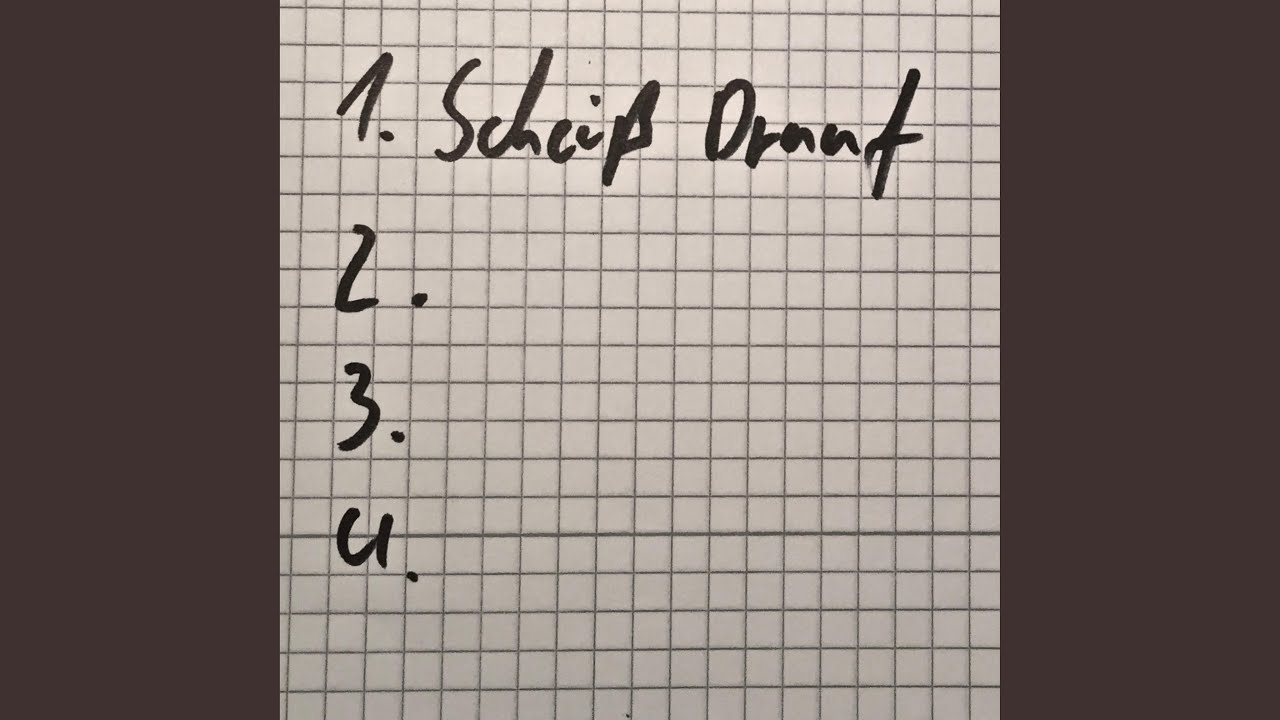 1. Scheiß Drauf
2.
3.
4.